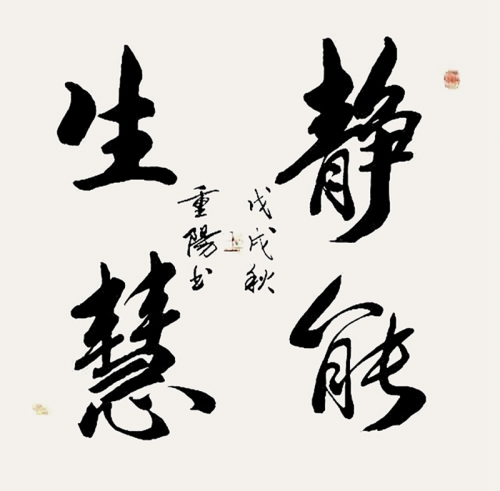 静能
生慧
戊戌秋
重陽书